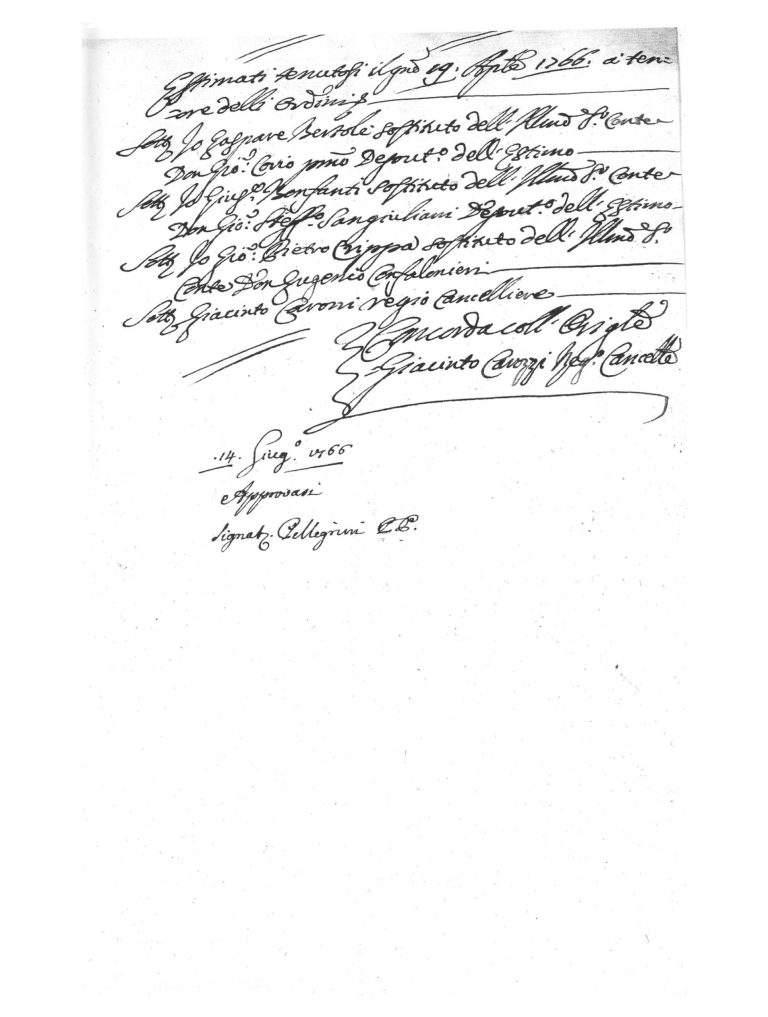 Estimati tenutosi il gno 19. Aprle 1766. a ten=
=ore delli Ordini
Sottto Io Gaspare Bertolè Sostituto dell' Illmo Sr. Conte
Don Gio. Corio pmo Deputto dell' Estimo
Sottto Io Giusp. Bonfanti Sostituto dell' Illmo Sr. Conte
Don Gio. Steffo Sangiuliani Deputo dell' Estimo
Sottto Io Gio. Pietro Crippa Sostituto dell' Illmo Sr.
Conte Don Eugenio Confalonieri
Sottto Giacinto Carozzi regio Cancelliere
Concorda coll' Origle
Giacinto Carozzi Rego Cancelle
.14. Giugo 1766
Approvasi
Signat. Pellegrini